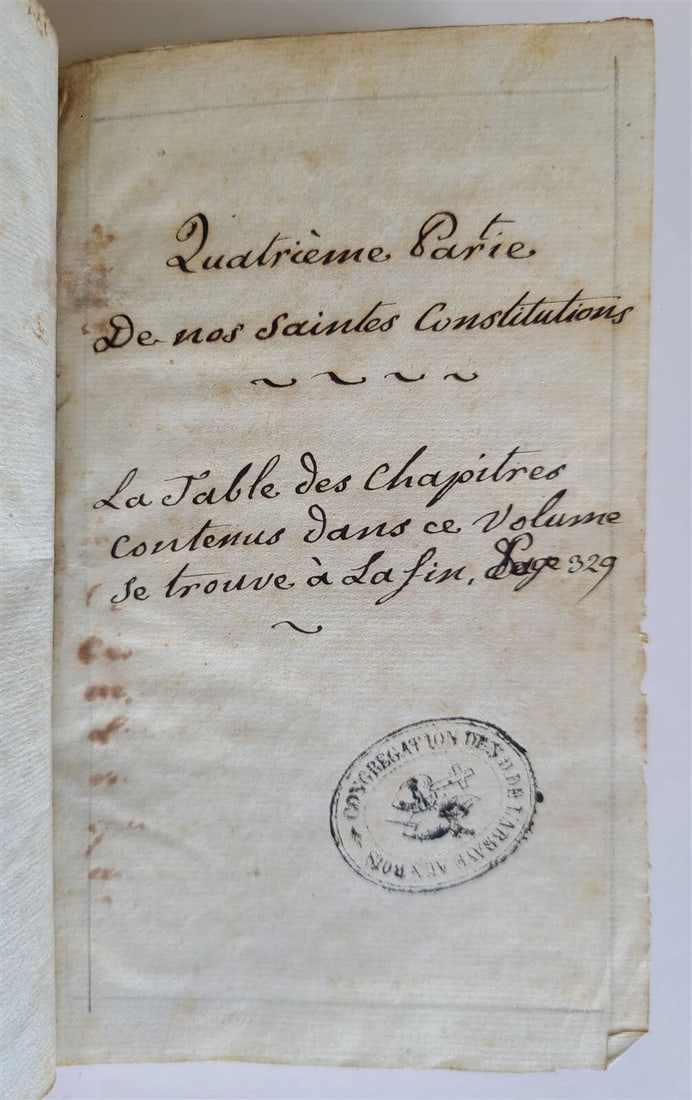 Quatrième Partie
De nos Saintes Constitutions
La Table des Chapitres
contenus dans ce volume
se trouve à La fin, Page 329
CONGRÉGATION DE N. D. DE L'ABBAYE AUX BOIS